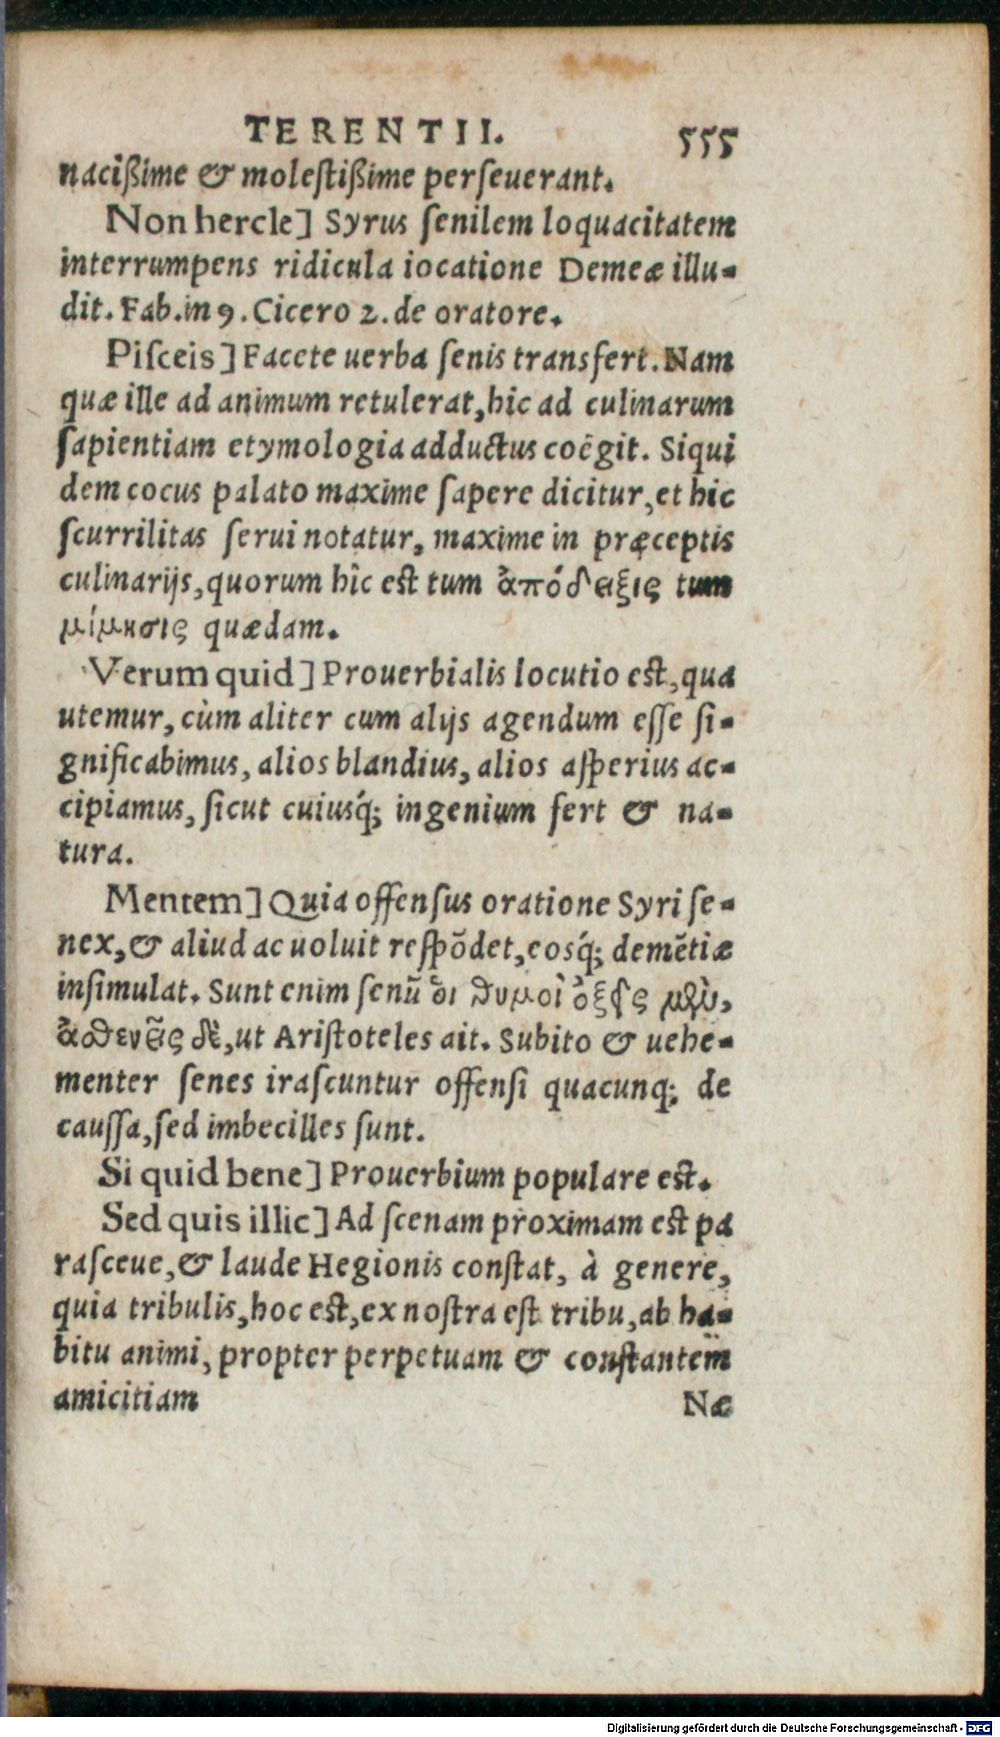 TERENTII. 555
nacißime & molestißime perseuerant.
Non hercle] Syrus senilem loquacitatem
interrumpens ridicula iocatione Demeæ illu-
dit. Fab. in 9. Cicero 2. de oratore.
Pisceis] Facete uerba senis transfert. Nam
quæ ille ad animum retulerat, hic ad culinarum
sapientiam etymologia adductus coëgit. Siqui
dem cocus palato maxime sapere dicitur, et hic
scurrilitas serui notatur, maxime in præceptis
culinarijs, quorum hîc est tum ἀπόδειξις tum
μίμησις quædam.
Verum quid] Prouerbialis locutio est, qua
utemur, cùm aliter cum alijs agendum esse si-
gnificabimus, alios blandius, alios asperius ac-
cipiamus, sicut cuiusq́; ingenium fert & na-
tura.
Mentem] Quia offensus oratione Syri se-
nex, & aliud ac uoluit respōdet, eosq́; demētiæ
insimulat. Sunt enim senū ὁι θυμοὶ ὀξεῖς μὲν,
ἀσθενεῖς δὲ, ut Aristoteles ait. Subito & uehe-
menter senes irascuntur offensi quacunq; de
caussa, sed imbecilles sunt.
Si quid bene] Prouerbium populare est.
Sed quis illic] Ad scenam proximam est pa
rasceue, & laude Hegionis constat, à genere,
quia tribulis, hoc est, ex nostra est tribu, ab ha-
bitu animi, propter perpetuam & constantem
amicitiam Næ
Digitalisierung gefördert durch die Deutsche Forschungsgemeinschaft - DFG